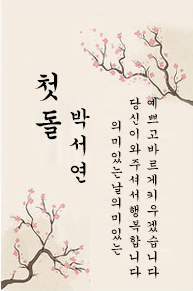 첫돌
박서연
의미있는날의미있는
당신이와주셔서행복합니다
예쁘고바르게키우겠습니다